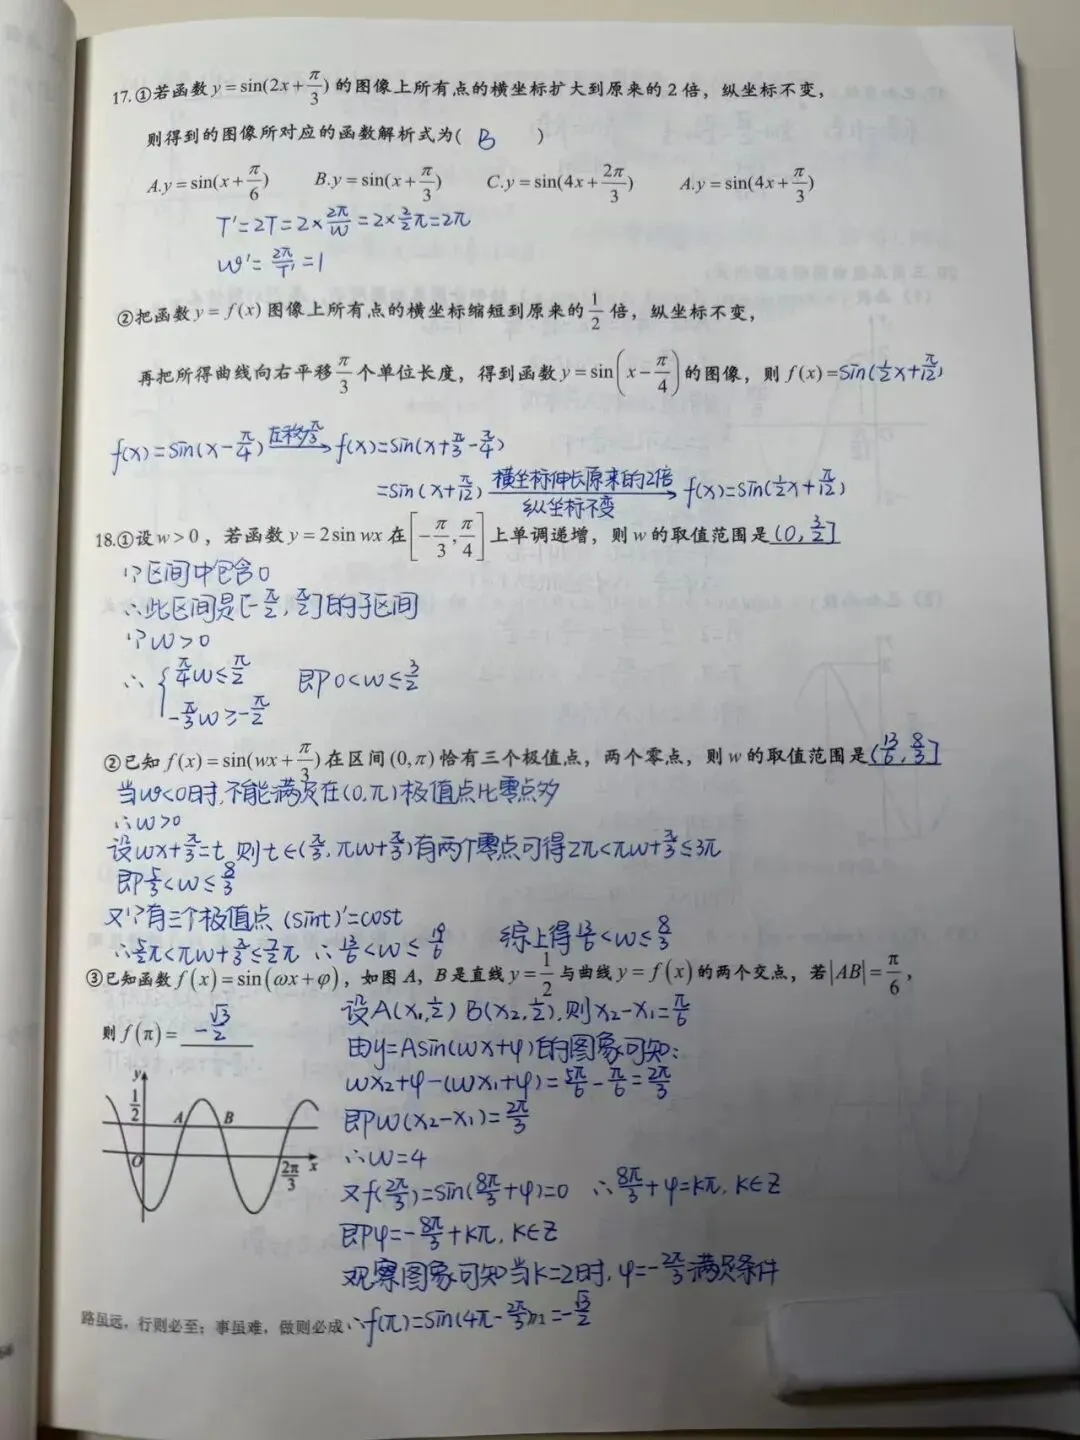 17.①若函数 y=sin(2x+π/3) 的图像上所有点的横坐标扩大到原来的2倍，纵坐标不变，
则得到的图像所对应的函数解析式为( B )
A.y=sin(x+π/6) B.y=sin(x+π/3) C.y=sin(4x+2π/3) A.y=sin(4x+π/3)
T'=2T=2×2π/w=2×2/2π=2π
w'=2π/T'=1
②把函数 y=f(x) 图像上所有点的横坐标缩短到原来的1/2倍，纵坐标不变，
再把所得曲线向右平移π/3个单位长度，得到函数 y=sin(x-π/4) 的图像，则 f(x)=sin(1/2x+π/12)
f(x)=sin(x-π/4) 左移π/3→ f(x)=sin(x+π/3-π/4)
=sin(x+π/12) 横坐标伸长原来的2倍 纵坐标不变→ f(x)=sin(1/2x+π/12)
18.①设 w>0，若函数 y=2sin wx 在[-π/3,π/4]上单调递增，则 w 的取值范围是(0,3/2]
∵区间中包含0
∴此区间是[-π/2,π/2]的子区间
∵w>0
∴{π/4w≤π/2 -π/3w≥-π/2 即0<w≤3/2
②已知 f(x)=sin(wx+π/3)在区间(0,π)恰有三个极值点，两个零点，则 w 的取值范围是(13/6,8/3]
当w<0时,不能满足在(0,π)极值点比零点多
∴w>0
设wx+π/3=t,则t∈(π/3,πw+π/3)有两个零点可得2π<πw+π/3≤3π
即5/3<w≤8/3
又∵有三个极值点 (sint)'=cost
∴5/2π<πw+π/3≤7/2π ∴13/6<w≤19/6 综上得13/6<w≤8/3
③已知函数 f(x)=sin(ωx+φ)，如图 A，B是直线 y=1/2 与曲线 y=f(x) 的两个交点，若|AB|=π/6，
则 f(π)= -√3/2
设A(x₁,1/2) B(x₂,1/2),则x₂-x₁=π/6
由y=Asin(wx+φ)的图象可知:
wx₂+φ-(wx₁+φ)=5π/6-π/6=2π/3
即w(x₂-x₁)=2π/3
∴w=4
又f(2π/3)=sin(8π/3+φ)=0 ∴8π/3+φ=kπ,k∈Z
即φ=-8π/3+kπ,k∈Z
观察图象可知当k=2时,φ=-2π/3满足条件
∴f(π)=sin(4π-2π/3)=-√3/2
y
1/2 A B
O 2π/3 x
路虽远，行则必至；事虽难，做则必成